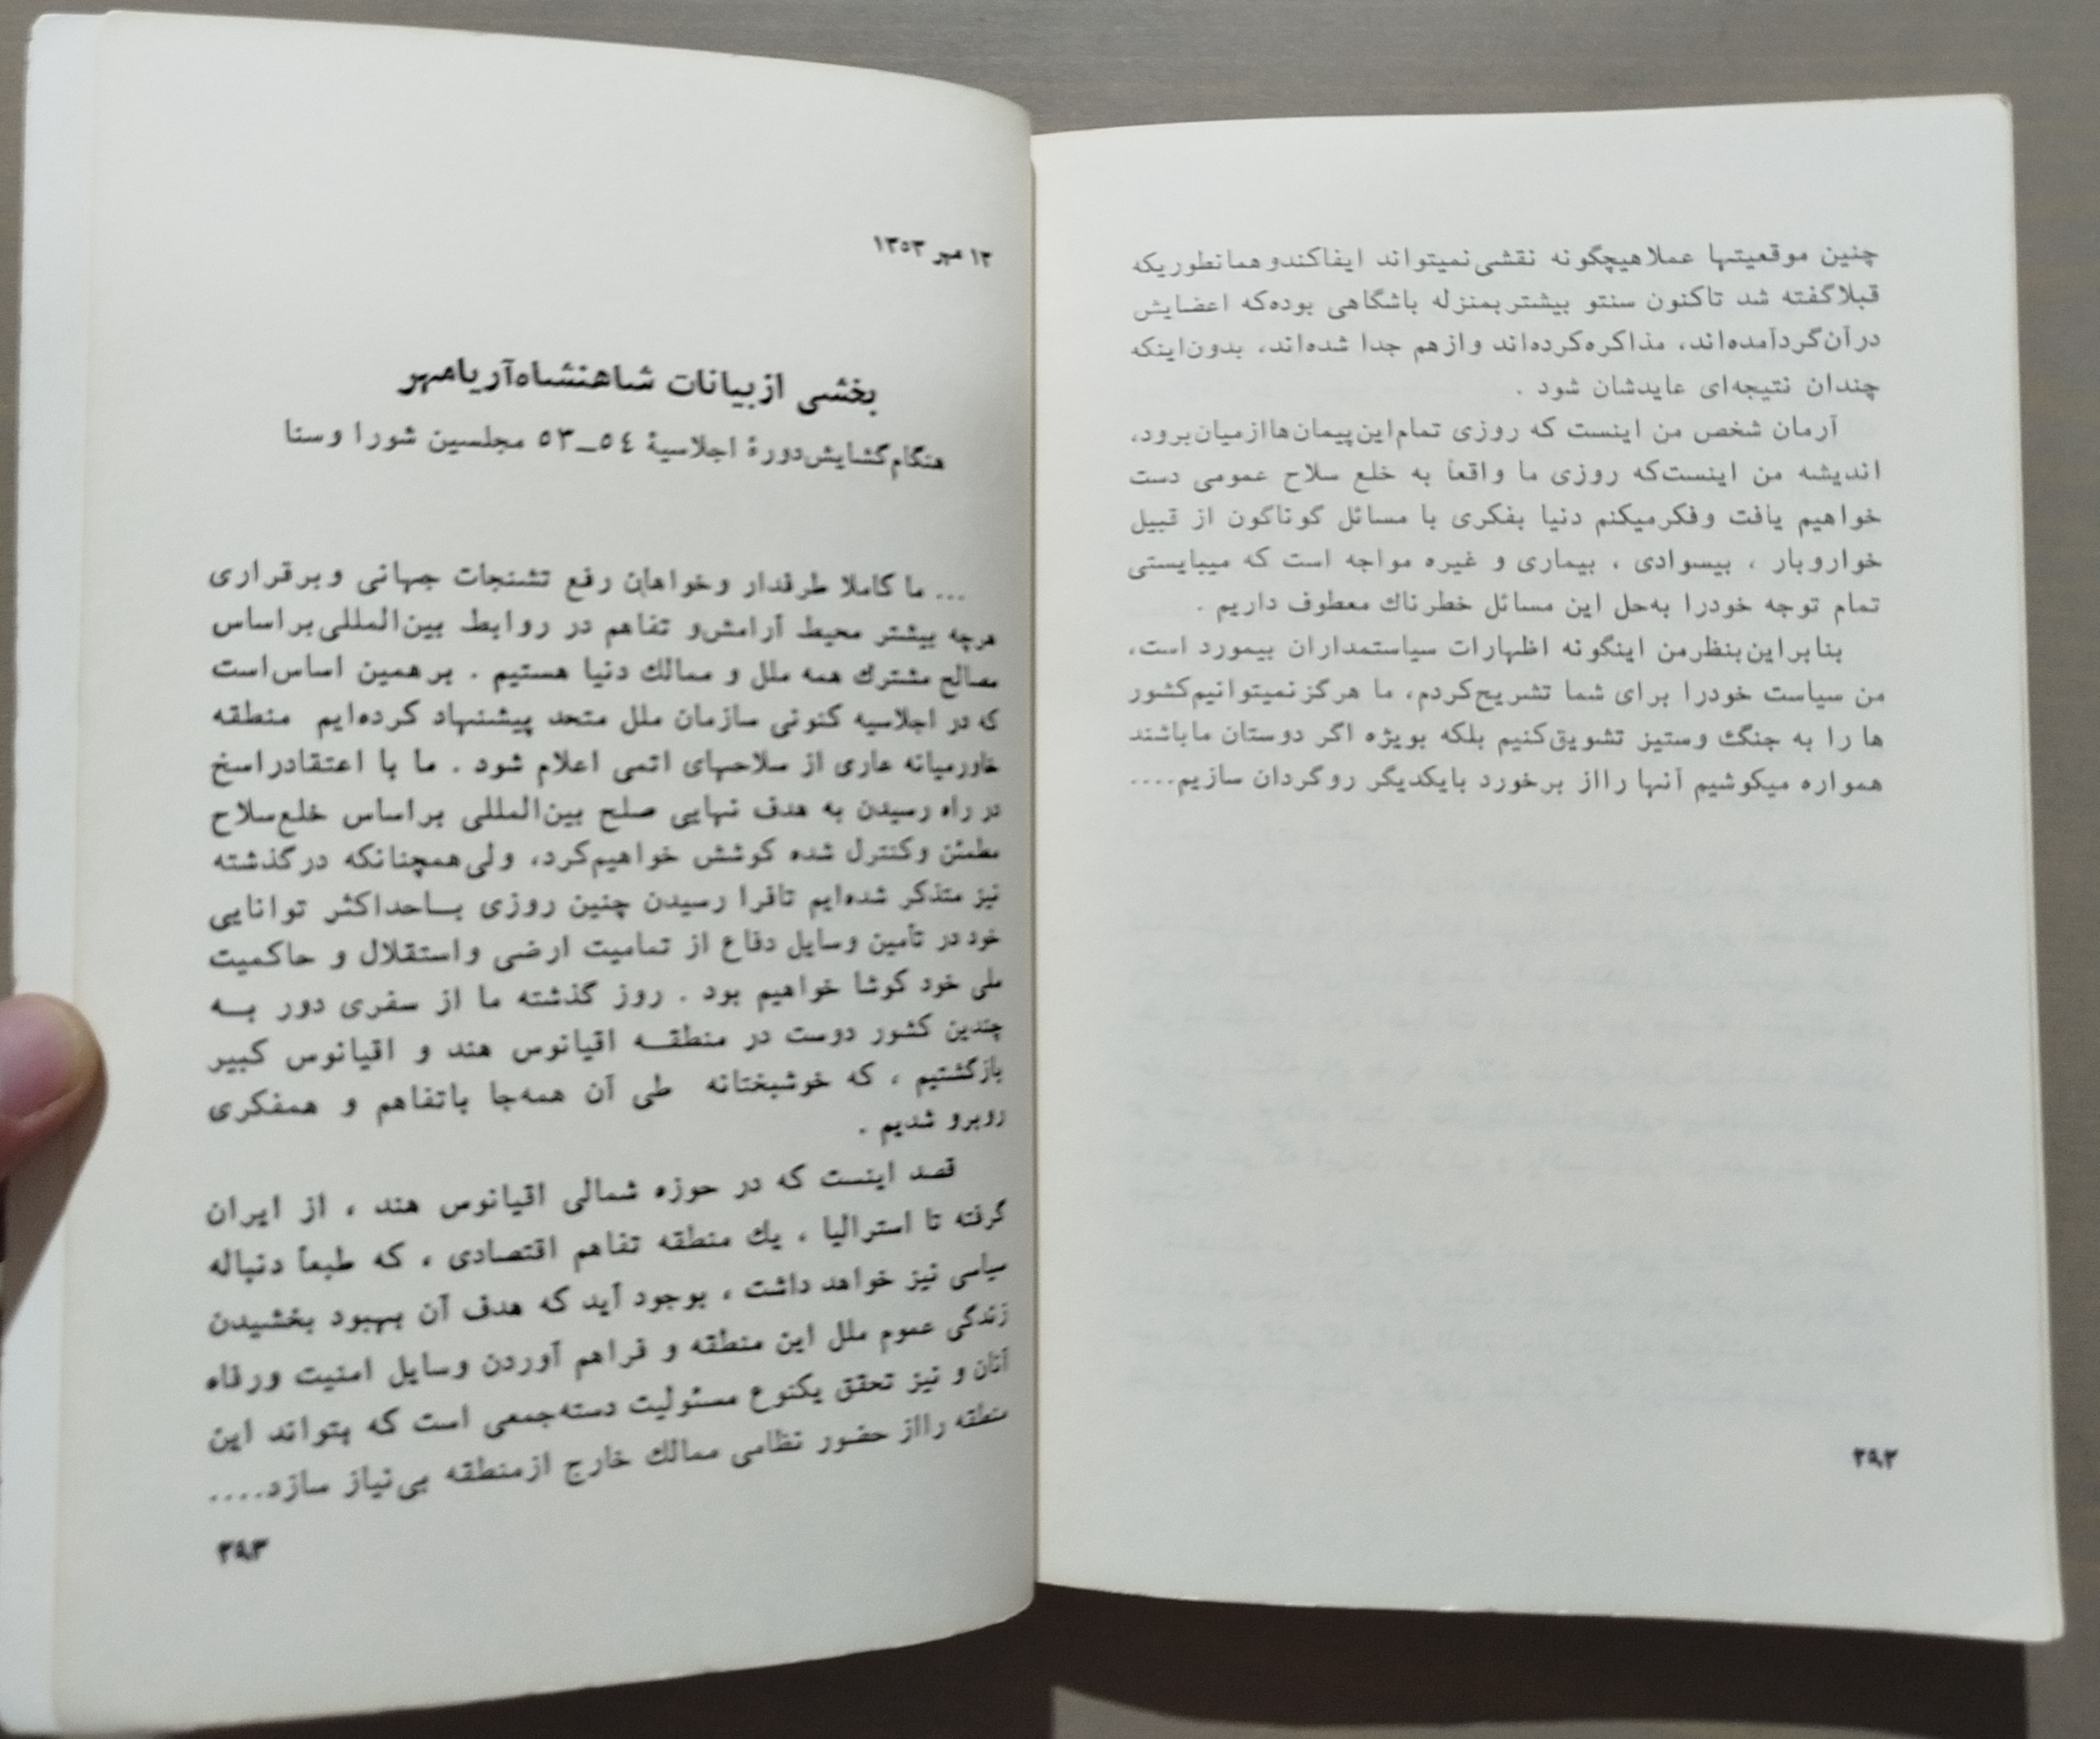 چنین موقعیتها عملا هیچگونه نقشی نمیتواند ایفاکند و همانطوریکه
قبلا گفته شد تاکنون سنتو بیشتر بمنزله باشگاهی بوده که اعضایش
در آن گردآمده‌اند، مذاکره کرده‌اند و از هم جدا شده‌اند، بدون اینکه
چندان نتیجه‌ای عایدشان شود .
آرمان شخص من اینست که روزی تمام این پیمان‌ها از میان برود،
اندیشه من اینست که روزی ما واقعاً به خلع سلاح عمومی دست
خواهیم یافت و فکر میکنم دنیا بفکری با مسائل گوناگون از قبیل
خواروبار ، بیسوادی ، بیماری و غیره مواجه است که میبایستی
تمام توجه خودرا به حل این مسائل خطرناك معطوف داریم .
بنابراین بنظر من اینگونه اظهارات سیاستمداران بیمورد است،
من سیاست خودرا برای شما تشریح کردم، ما هرگز نمیتوانیم کشور
ها را به جنگ و ستیز تشویق کنیم بلکه بویژه اگر دوستان ما باشند
همواره میکوشیم آنها را از برخورد بایکدیگر روگردان سازیم....
۲۹۲
۱۲ مهر ۱۳۵۳
بخشی از بیانات شاهنشاه آریامهر
هنگام گشایش دورهٔ اجلاسیهٔ ٥٤ــ٥٣ مجلسین شورا و سنا
... ما کاملا طرفدار و خواهان رفع تشنجات جهانی و برقراری
هرچه بیشتر محیط آرامش و تفاهم در روابط بین‌المللی براساس
مصالح مشترك همه ملل و ممالك دنیا هستیم . بر همین اساس است
که در اجلاسیه کنونی سازمان ملل متحد پیشنهاد کرده‌ایم منطقه
خاورمیانه عاری از سلاحهای اتمی اعلام شود . ما با اعتقاد راسخ
در راه رسیدن به هدف نهایی صلح بین‌المللی براساس خلع سلاح
مطمئن و کنترل شده کوشش خواهیم کرد، ولی همچنانکه در گذشته
نیز متذکر شده‌ایم تافرا رسیدن چنین روزی بــاحداکثر توانایی
خود در تأمین وسایل دفاع از تمامیت ارضی و استقلال و حاکمیت
ملی خود کوشا خواهیم بود . روز گذشته ما از سفری دور بــه
چندین کشور دوست در منطقــه اقیانوس هند و اقیانوس کبیر
بازگشتیم ، که خوشبختانه طی آن همه‌جا باتفاهم و همفکری
روبرو شدیم .
قصد اینست که در حوزه شمالی اقیانوس هند ، از ایران
گرفته تا استرالیا ، یك منطقه تفاهم اقتصادی ، که طبعاً دنباله
سیاسی نیز خواهد داشت ، بوجود آید که هدف آن بهبود بخشیدن
زندگی عموم ملل این منطقه و فراهم آوردن وسایل امنیت و رفاه
آنان و نیز تحقق یکنوع مسئولیت دسته‌جمعی است که بتواند این
منطقه را از حضور نظامی ممالك خارج از منطقه بی‌نیاز سازد....
۲۹۳